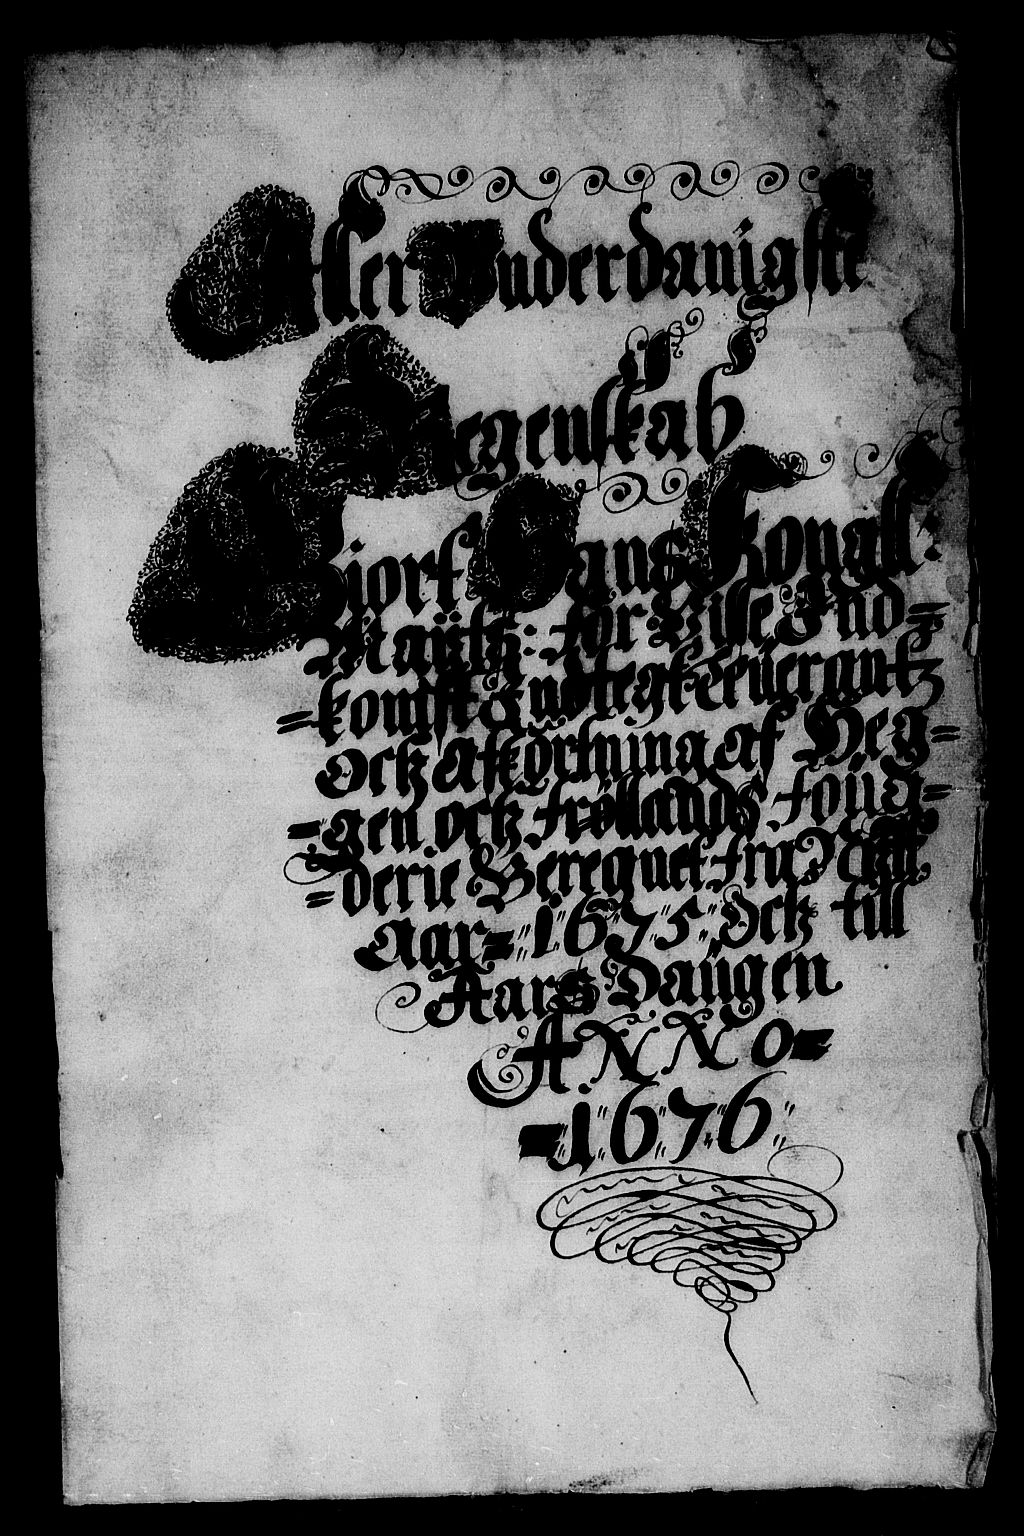 Aller Underdanigste
Regenskab
Giort Hans Kongl:
Maÿtz: for Visse Ind=
=komst &
Ock Afkortning af Heg=
=gen ock frøllands foug=
=derie Beregnet fra
Aar= 1675: Ock till
Aars Daugen
ANNO=
=1676: